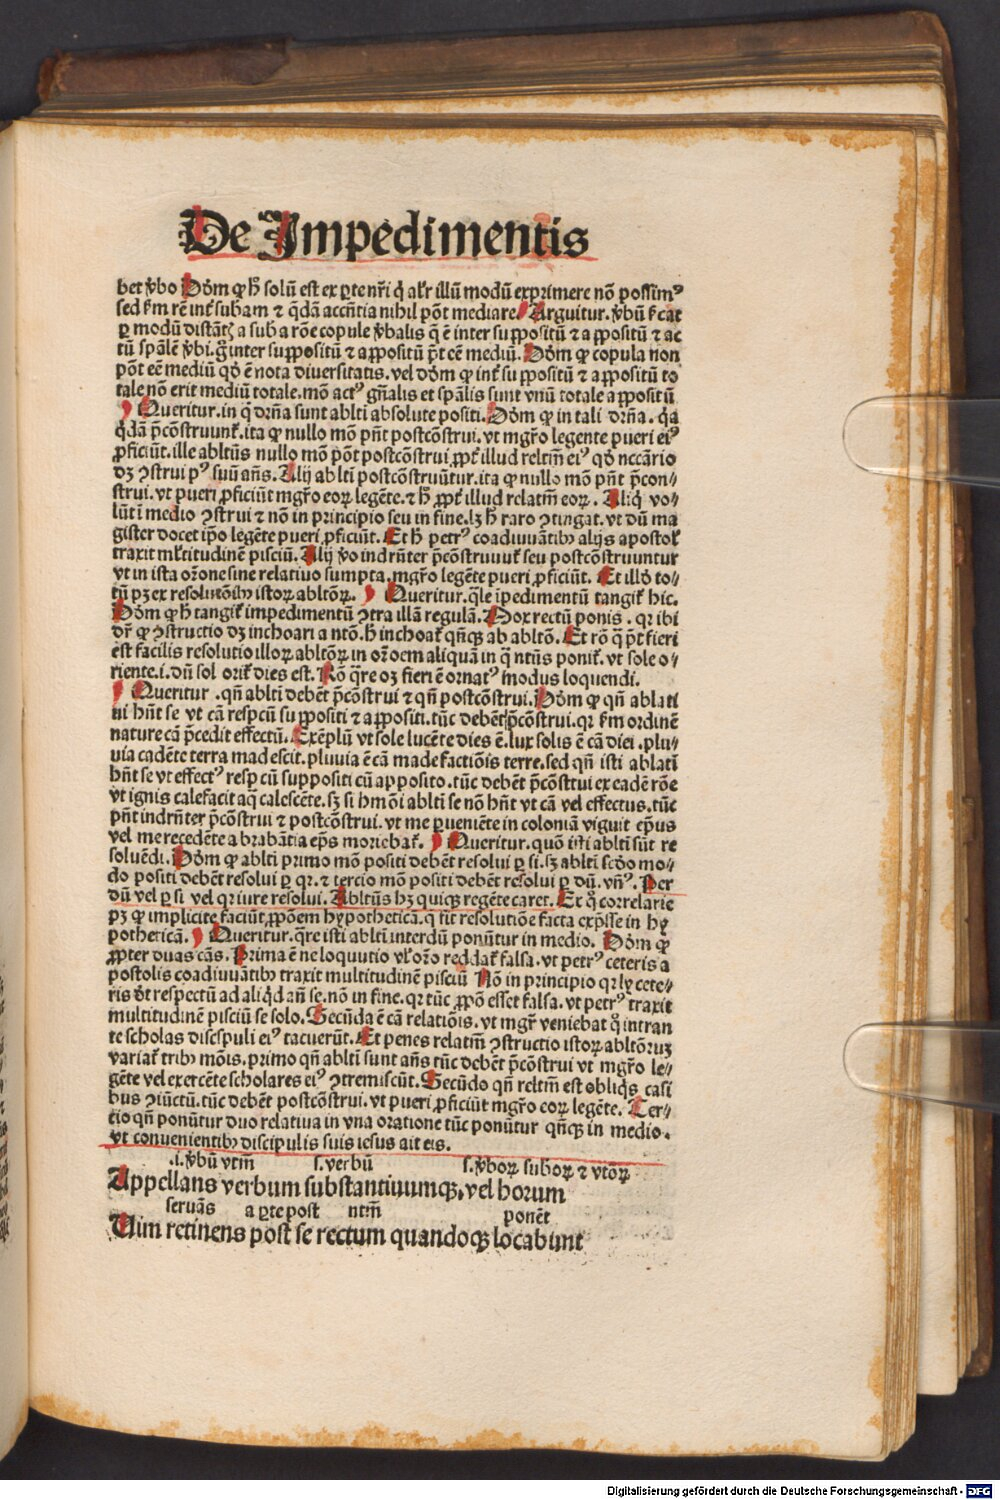 De Impedimentis
bet v̓bo Dōm ꝙ hͦ solū est ex ꝑte nr̄i q̄ alr̄ illū modū exprimere nō possimꝰ
sed ẜm rē int̓ subam ⁊ q̄dā accn̄tia nihil pōt mediare Arguitur. v̓bū ẜcat
ꝑ modū distātꝭ a sub a rōe copule v̓balis q̄ ē inter suppositū ⁊ appositū ⁊ ac
tū spālē v̓bi. g̊ inter suppositū ⁊ appositū pōt eē mediū. Dōm ꝙ copula non
pōt eē mediū qd̓ ē nota diversitatis. vel dōm ꝙ int̓ suppositū ⁊ appositū to
tale nō erit mediū totale. mō actꝰ gn̄alis et spālis sunt vnū totale appositū
Queritur. in q̄ drn̄a sunt ablti absolute positi. Dōm ꝙ in tali drn̄a. qꝛ
q̄dā p̄cōstruunt̄. ita ꝙ nullo mō pn̄t postcōstrui. vt mgr̄o legente pueri eiꝰ
ꝓficiūt. ille abltūs nullo mō pōt postcōstrui ꝓpt̓ illud reltm̄ eiꝰ qd̓ nccārio
dꝫ ↄstrui pꝰ suū an̄s. Alij ablti postcōstruūtur. ita ꝙ nullo mō pn̄t p̄con⸗
strui. vt pueri ꝓficiūt mgr̄o eoꝝ legēte. ⁊ hͦ ꝓpt̓ illud relatm̄ eoꝝ. Aliq̄ vo⸗
lūt i medio ↄstrui ⁊ nō in principio seu in fine. lꝫ hͦ raro ↄtingat. vt dū ma
gister docet ip̄o legēte pueri ꝓficiūt. Et hͦ petrꝰ coadiuuātibꝫ alijs apostol̓
traxit ml̓titudinē pisciū. Alij v̓o indrn̄ter p̄cōstruunt̄ seu postcōstruuntur
vt in ista orōne sine relatiuo sumpta. mgr̄o legēte pueri ꝓficiūt. Et illd̓ to⸗
tū pꝫ ex resolutōibꝫ istoꝝ abltōꝝ. Queritur. q̄le īpedimentū tangit̄ hic.
Dōm ꝙ hͦ tangit̄ impedimentū ↄtra illā regulā. Mox rectū ponis. qꝛ ibi
dr̄ ꝙ ↄstructio dꝫ inchoari a ntō. hͦ inchoat̄ qn̄qꝫ ab abltō. Et rō q̄ p̄t fieri
est facilis resolutio illoꝝ abltōꝝ in orōem aliquā in q̄ ntūs ponit̄. vt sole o⸗
riente. i. dū sol orit̄ dies est. Rō q̄re oꝫ fieri ē ornatꝰ modus loquendi.
Queritur. qn̄ ablti debēt p̄cōstrui ⁊ qn̄ postcōstrui. Dōm ꝙ qn̄ ablati
ui hn̄t se vt cā respcū suppositi ⁊ appositi. tūc debēt p̄cōstrui. qꝛ ẜm ordinē
nature cā p̄cedit effectū. Exēplū vt sole lucēte dies ē. lux solis ē cā diei. plu⸗
uia cadēte terra madescit. pluuia ē cā madefactiōis terre. sed qn̄ isti ablati
hn̄t se vt effectꝰ respcū suppositi cū apposito. tūc debēt p̄cōsttui ex cadē rōe
vt ignis calefacit aq̄ calescēte. sꝫ si hmōi ablti se nō hn̄t vt cā vel effectus. tūc
pn̄t indrn̄ter p̄cōstrui ⁊ postcōstrui. vt me ꝑueniēte in coloniā viguit ep̄us
vel me recedēte a brabātia ep̄s moriebat̄. Queritur. quō isti ablti sūt re
soluēdi. Dōm ꝙ ablti primo mō positi debēt resolui ꝑ si. sꝫ ablti scd̓o mo⸗
do positi debēt resolui ꝑ qꝛ. ⁊ tercio mō positi debēt resolui ꝑ dū. vn̄ꝰ. Per
dū vel ꝑ si vel qꝛ iure resolui. Abltūs hꝫ quicqꝫ regēte caret. Ex q̊ correlarie
pꝫ ꝙ implicite faciūt ꝓpōem hypotheticā. q̄ fit resolutiōe facta exp̄sse in hy
potheticā. Queritur. q̄re isti ablti interdū ponūtur in medio. Dōm ꝙ
ꝓpter duas cās. Prima ē ne loquutio vl̓ orō reddat̄ falsa. vt petrꝰ ceteris a
postolis coadiuuātibꝫ traxit multitudinē pisciū Nō in principio qꝛ ly cete⸗
ris d̓t respectū ad aliq̄d an̄ se. nō in fine. qꝛ tūc ꝓpō esset falsa. vt petrꝰ traxit
multitudinē pisciū se solo. Secūda ē cā relatiōis. vt mgr̄ veniebat q̊ intran
te scholas discspuli eiꝰ tacuerūt. Et penes relatm̄ ↄstructio istoꝝ abltōruꝫ
variat̄ tribꝫ mōis. primo qn̄ ablti sunt an̄s tūc debēt p̄cōstrui vt mgr̄o le⸗
gēte vel exercēte scholares eiꝰ ↄtremiscūt. Secūdo qn̄ reltm̄ est obliq̄s casi
bus ↄiūctū. tūc debēt postcōstrui. vt pueri ꝓficiūt mgr̄o eoꝝ legēte. Ter⸗
tio qn̄ ponūtur duo relatiua in vna oratione tūc ponūtur qn̄qꝫ in medio.
vt convenientibꝫ discipulis suis iesus ait eis.
.i. v̓bū vtm̄ s. verbū s. v̓boꝝ suboꝝ ⁊ vtoꝝ
Appellans verbum substantiuumqꝫ, vel horum
seruās a ꝑte post ntm̄ ponēt
Uim retinens post se rectum quandoqꝫ locabunt
Digitalisierung gefördert durch die Deutsche Forschungsgemeinschaft - DFG